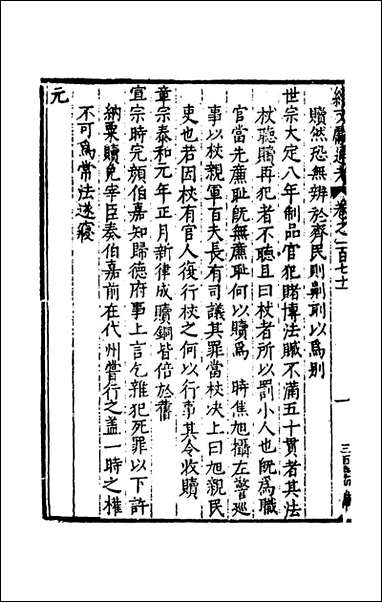 續文獻通考　卷之一百七十
贖然恐無辨於齊民則劓刖以爲別
世宗大定八年制品官犯賭博法贓不滿五十貫者其法
杖聽贖再犯者不聽且曰杖者所以罰小人也旣爲職
官當先亷耻旣無亷耻何以贖爲　時焦旭攝左警廵
事以杖親軍百夫長有司議其罪當杖決上曰旭親民
吏也若因杖有官人復行杖之何以行事其令收贖
章宗泰和元年正月新律成贖銅皆倍於舊
宣宗時完顔伯嘉知歸德府事上言乞雜犯死罪以下許
納粟贖免宰臣奏伯嘉前在代州嘗行之盖一時之權
不可爲常法遂寢
元